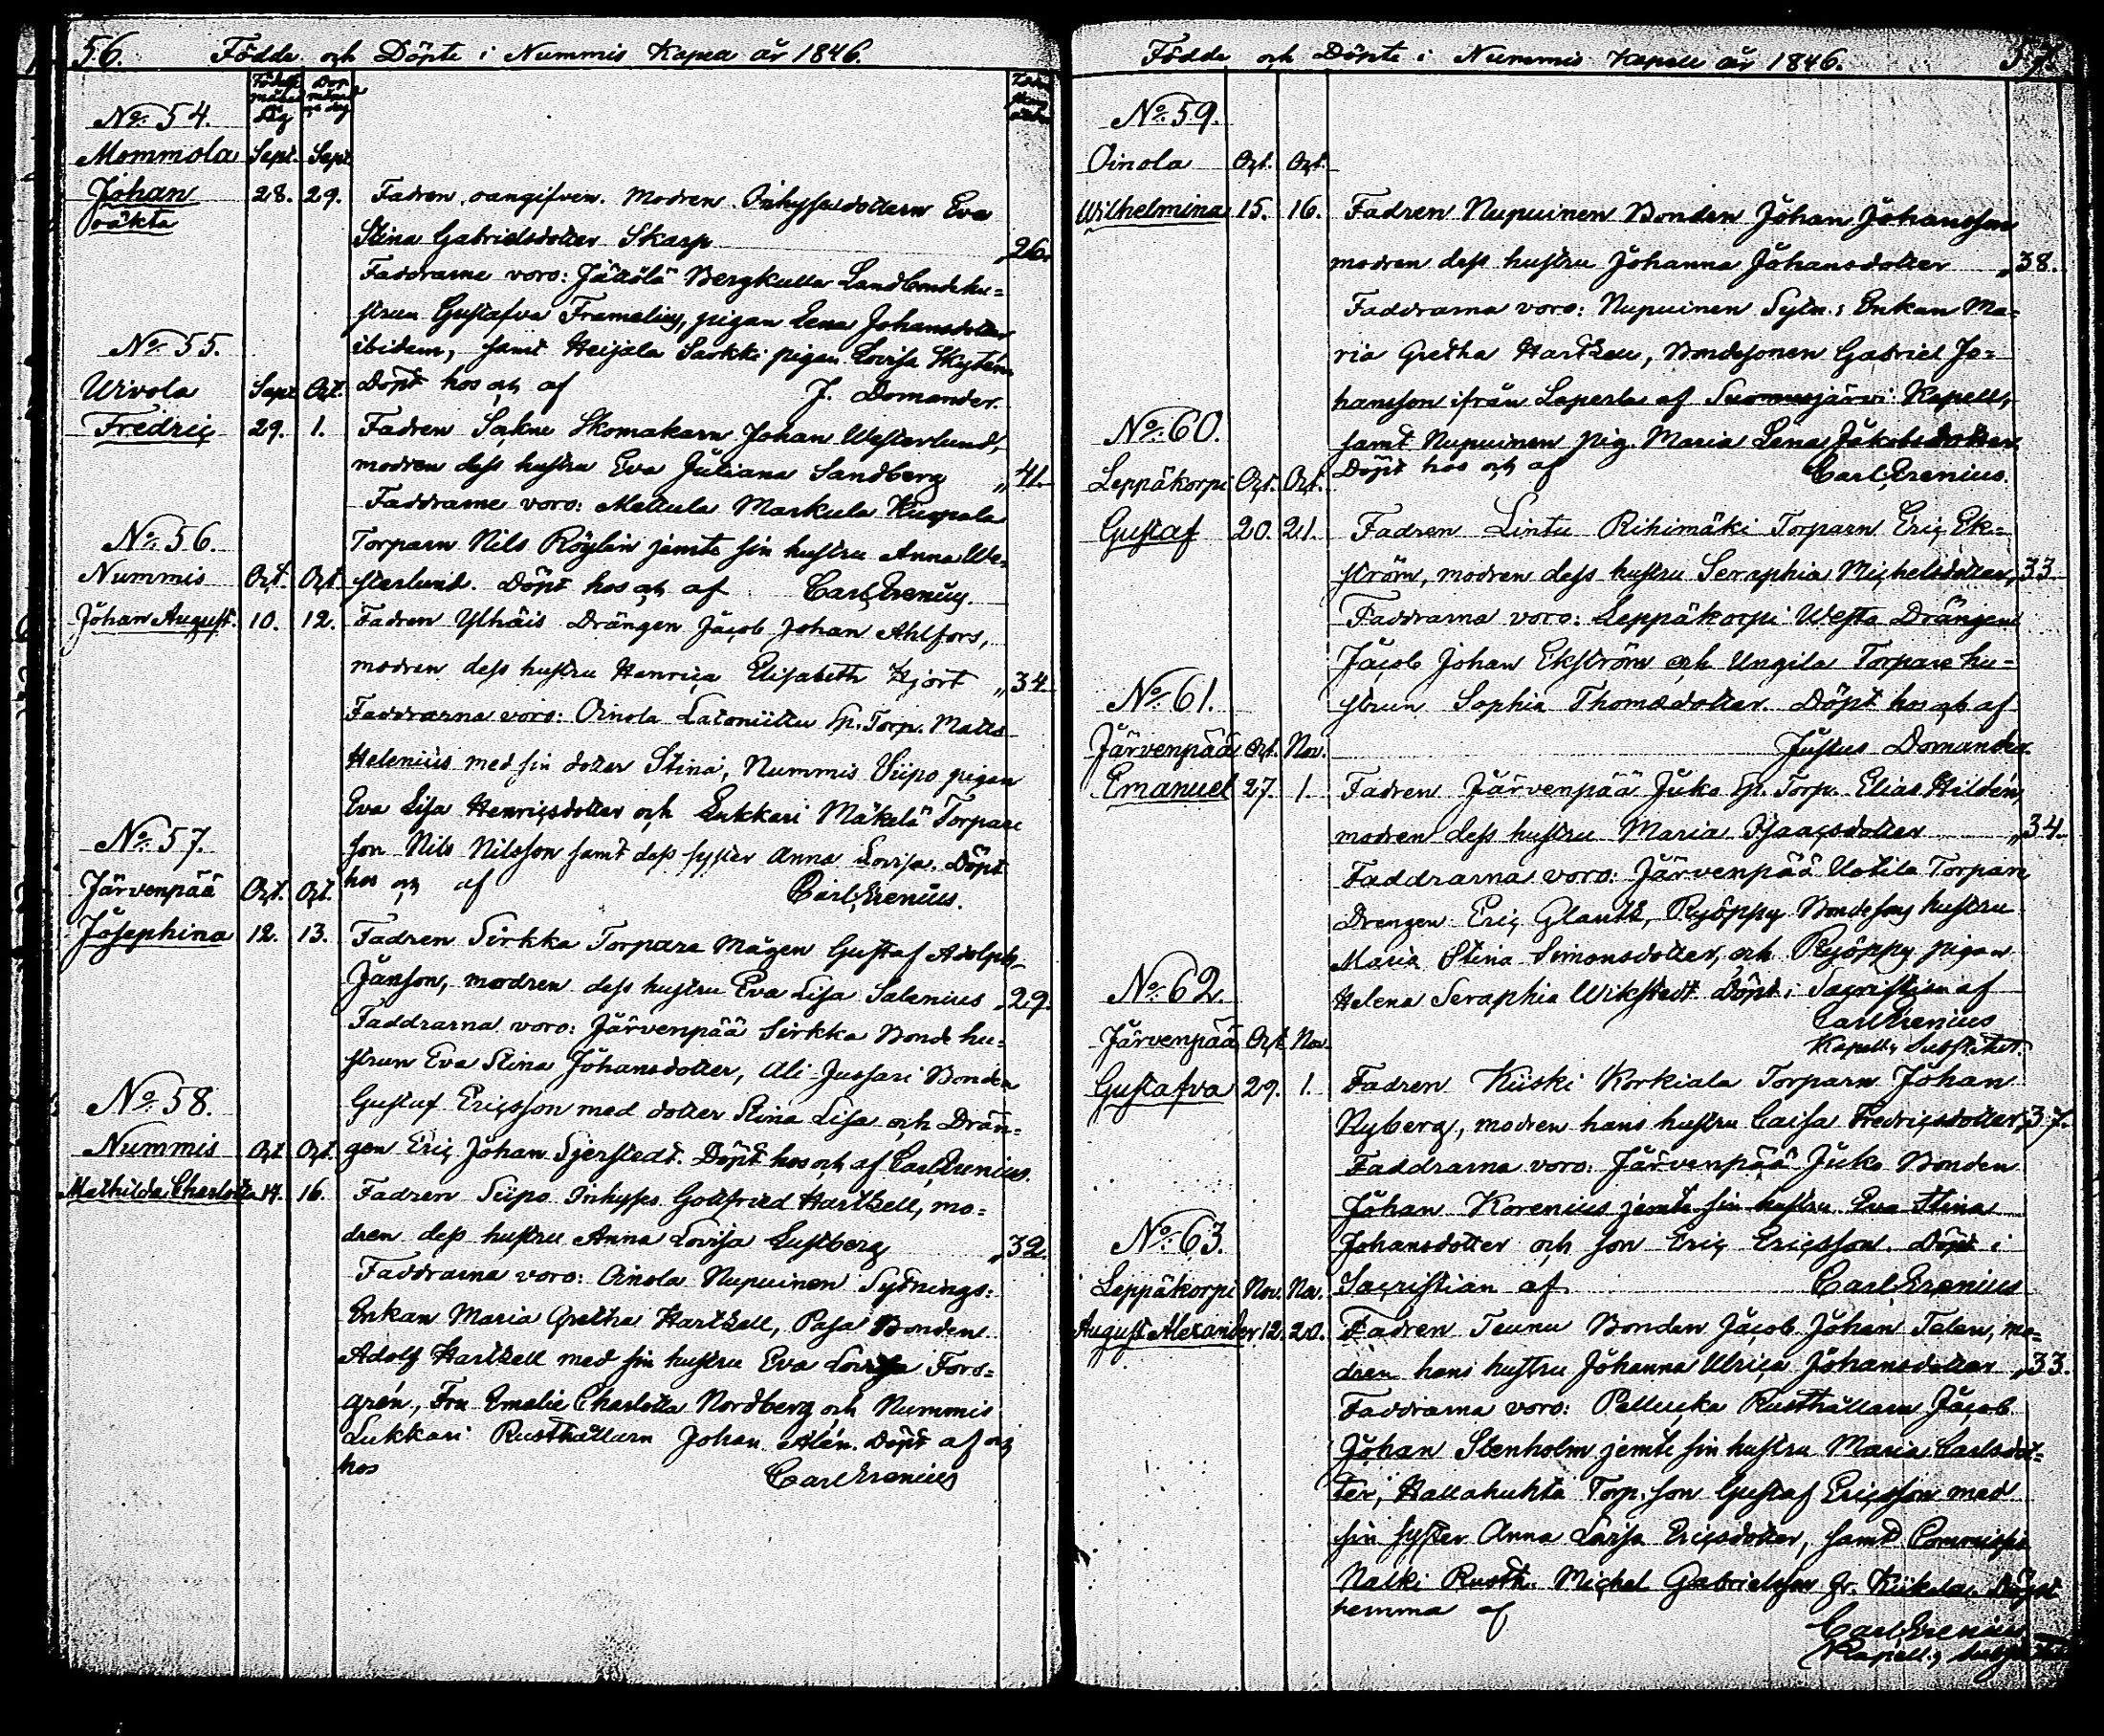 56. Födde och Döpte i Nummis Kapell år 1846.
No. 54.
Mommola Sept. Sept.
Johan 28. 29. Fadren oangifven. Modren Inhysesdottern Eva
oäkta
Stina Gabrielsdotter Skarp „26.
Faddrarne voro: Jättölä Bergkulla Landbondehu=
strun Gustafva Framelius, pigan Lena Johansdotter
ibidem, samt Heijala Sarkki pigan Lovisa Skytén.
Döpt hos och af J. Domander.
No. 55.
Uivola Sept. Oct.
Fredric 29. 1. Fadren Sakne Skomakarn Johan Westerlund,
modren dess hustru Eva Juliana Sandberg „41.
Faddrarne voro: Mettula Markula Kuppala
Torparn Nils Röylin jemte sin hustru Anna We=
sterlund. Döpt hos och af Carl Erenius.
No. 56.
Nummis Oct. Oct.
Johan August. 10. 12. Fadren Ylhäis Drängen Jacob Johan Ahlfors,
modren dess hustru Henrica Elisabeth Hjort „34.
Faddrarna voro: Oinola Latoniittu Sp. Torp. Matts
Helenius med sin dotter Stina, Nummis Siipo pigan
Eva Lisa Henricsdotter och Lukkari Mäkelä Torpare
son Nils Nilsson samt dess syster Anna Lovisa. Döpt
hos och af Carl Erenius.
No. 57.
Järvenpää Oct. Oct.
Josephina 12. 13. Fadren Sirkka Torpare Mågen Gustaf Adolph
Janson, modren dess hustru Eva Lisa Salenius „29.
Faddrarna voro: Järvenpää Sirkka Bonde hu=
strun Eva Stina Johansdotter, Ali Jussari Bonden
Gustaf Ericsson med dotter Stina Lisa och Drän=
gen Eric Johan Sjerstedt. Döpt hos och af Carl Erenius.
No. 58.
Nummis Oct. Oct.
Mathilda Charlotta 14. 16. Fadren Siipo Inhyses Gottfried Hartzell, mo=
dren dess hustru Anna Lovisa Lustberg „32
Faddrarna voro: Oinola Nupuinen Sytnings:
Enkan Maria Gretha Hartzell, Pasa Bonden
Adolf Hartzell med sin hustru Eva Lovisa Fors=
grén, Fru Emelie Charlotta Nordberg och Nummis
Lukkari Rusthållarn Johan Alén. Döpt af och
hos Carl Erenius
Födde och Döpte i Nummis Kapell år 1846. 57.
No. 59.
Oinola Oct. Oct.
Wilhelmina 15. 16. Fadren Nupuinen Bonden Johan Johansson
modren dess hustru Johanna Johansdotter „38.
Faddrarna voro: Nupuinen Sytn: Enkan Ma=
ria Gretha Hartzell, Bondesonen Gabriel Jo=
hansson ifrån Laperla af Suomusjärvi Kapell,
samt Nupuinen pig. Maria Lena Jakobsdotter.
Döpt hos och af Carl Erenius.
No. 60.
Leppäkorpi Oct. Oct.
Gustaf 20. 21. Fadren Lintu Rihimäki Torparn Eric Ek=
ström, modren dess hustru Seraphia Michelsdotter, 33
Faddrarna voro: Leppäkorpi Westa Drängen
Jacob Johan Ekström och Ungila Torpare hu=
strun Sophia Thomasdotter. Döpt hos och af
Justus Domander.
No. 61.
Järvenpää Oct. Nov.
Emanuel 27. 1. Fadren Järvenpää Juko Sp. Torp. Elias Hildén,
modren dess hustru Maria Isaacsdotter „34.
Faddrarna voro: Järvenpää Uotila Torpare
Drengen Eric Glantz, Ryöppy Bondesons hustru
Maria Stina Simonsdotter, och Ryöppy pigan
Helena Seraphia Wikstedt. Döpt i Sacristian af
Carl Erenius
Kapell:s Substitut.
No. 62.
Järvenpää Oct. Nov.
Gustafva 29. 1. Fadren Kiiski Korkiala Torparn Johan
Nyberg, modren hans hustru Caisa Fredricsdotter, 37.
Faddrarna voro: Järvenpää Juko Bonden
Johan Korenius jemte sin hustru Eva Stina
Johansdotter och son Eric Ericsson. Döpt i
Sacristian af Carl Erenius
No. 63.
Leppäkorpi Nov. Nov.
August Alexander 12. 20. Fadren Teunu Bonden Jacob Johan Talen, mo=
dren hans hustru Johanna Ulrica Johansdotter „33.
Faddrarna voro: Pellucka Rusthållarn Jacob
Johan Stenholm jemte sin hustru Maria Carlsdot=
ter, Hallahuhta Torp. son Gustaf Ericsson med
sin syster Anna Lovisa Ericsdotter, samt
Nalki Rusth. Michel Gabrielsson Döpt
hemma af
Carl Erenius
Kapell:s